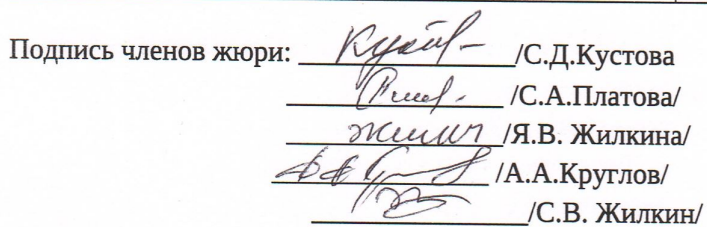 Подпись членов жюри: /С.Д.Кустова
/С.А.Платова/
/Я.В. Жилкина/
/А.А.Круглов/
/С.В. Жилкин/